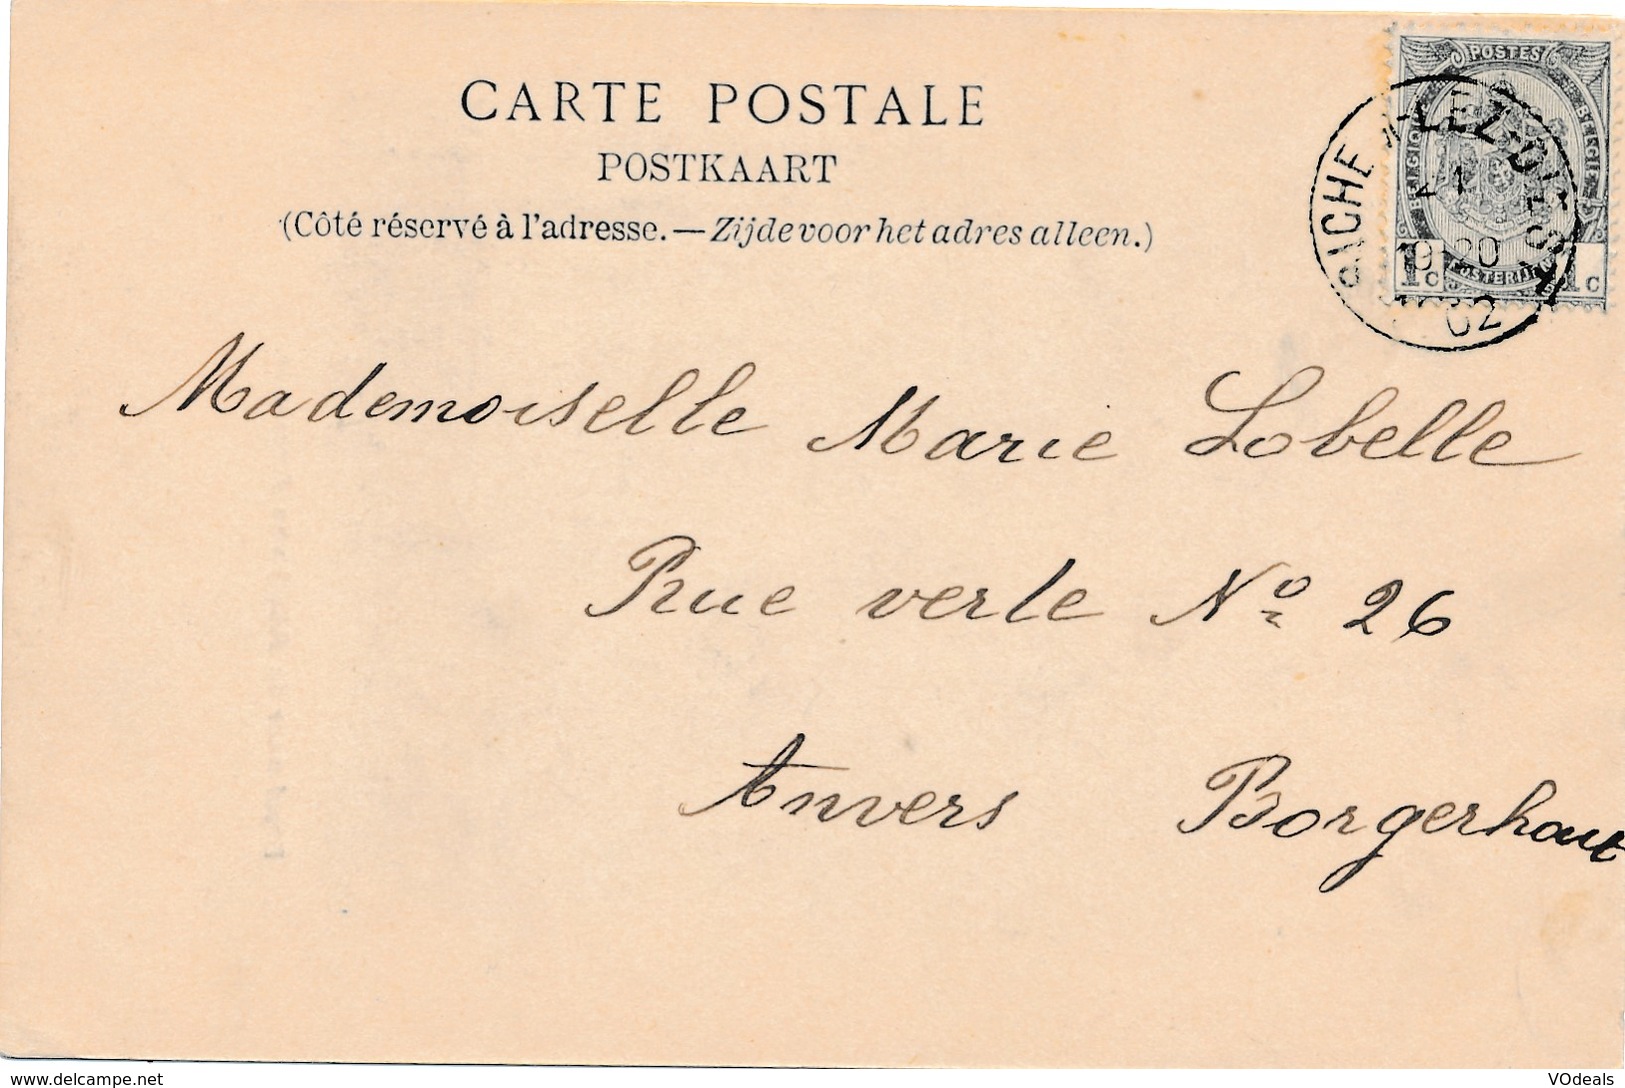 CARTE POSTALE
POSTKAART
(Côté réservé à l'adresse. — Zijde voor het adres alleen.)
POSTES
BELGIQUE BELGIË
1c 1c
SICHEM-LEZ-DIEST
21
9-20
02
Mademoiselle Marie Lobelle
Rue verte No 26
Anvers Borgerhout
www.delcampe.net
VOdeals